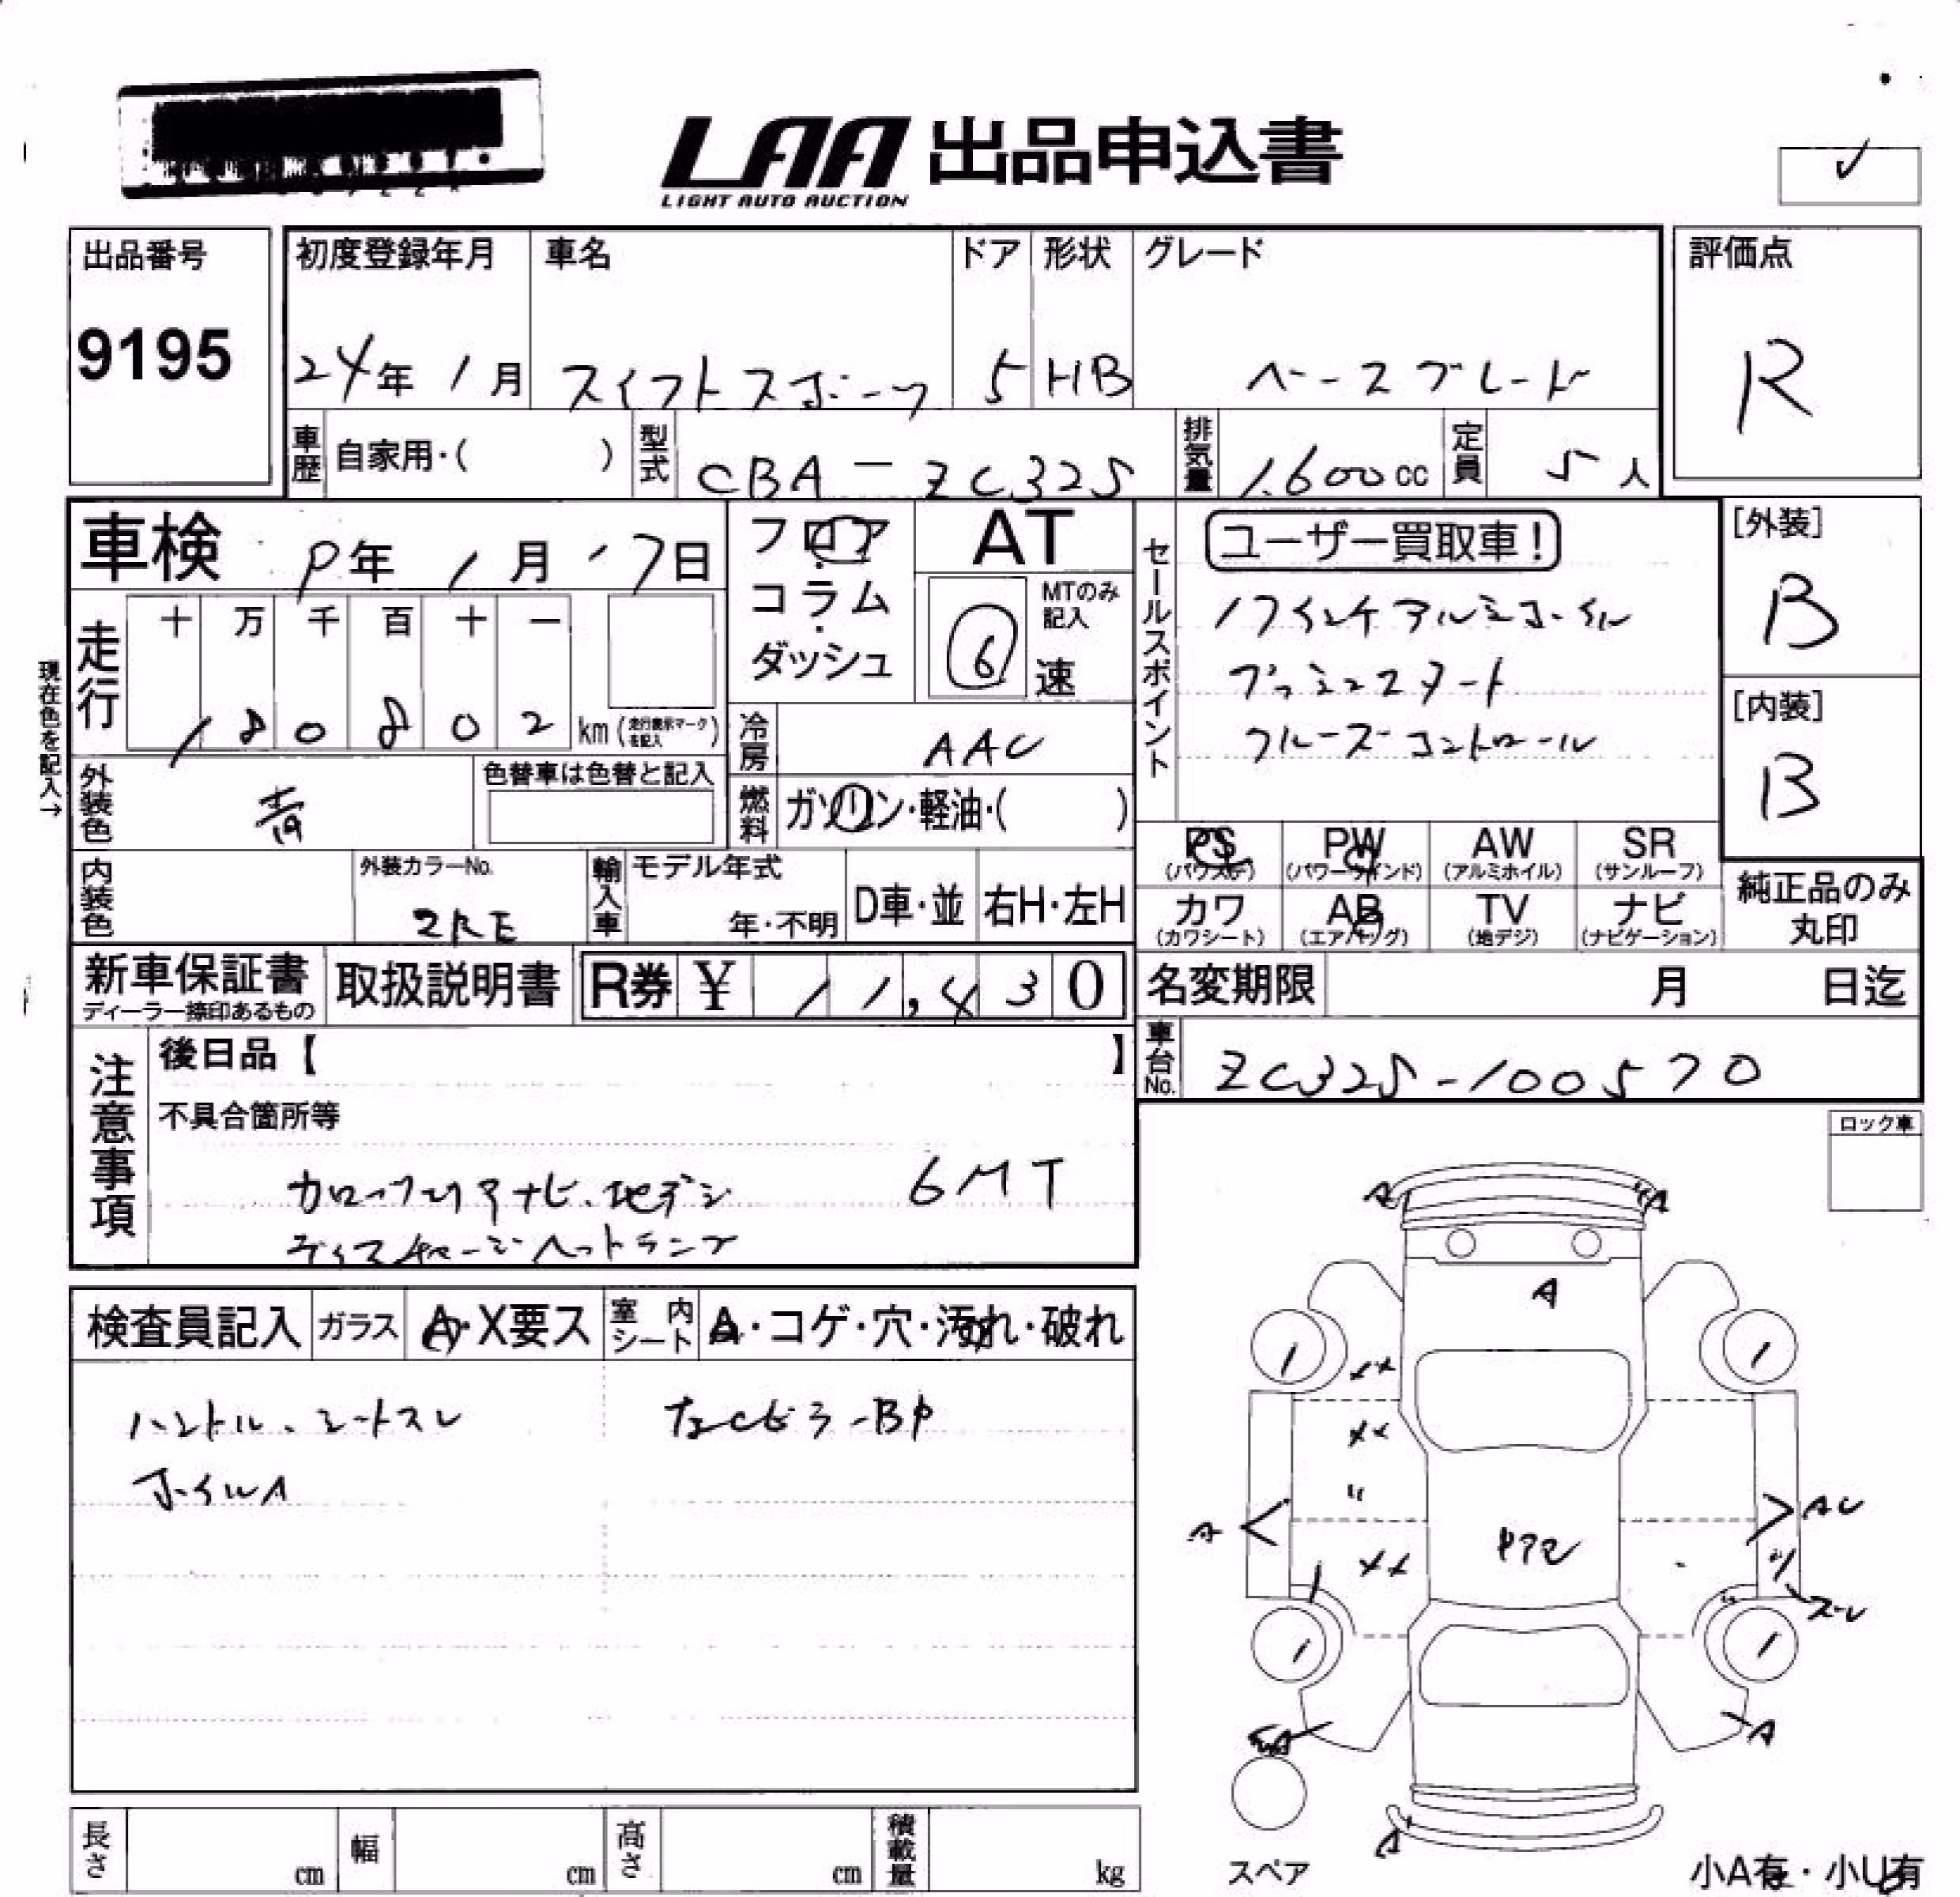 LAA 出品申込書
LIGHT AUTO AUCTION
出品番号
9195
初度登録年月
24年 1月
車名
スイフトスポーツ
ドア
5
形状
HB
グレード
ベースグレード
評価点
R
車歴
自家用・( )
型式
CBA-ZC32S
排気量
1,600cc
定員
5人
車検 9年 1月 17日
走行
十 万 千 百 十 一
1 8 0 8 0 2 km (走行表示マークを記入)
現在色を記入→
外装色
青
色替車は色替と記入
内装色
外装カラーNo.
ZRE
輸入車
モデル年式
年・不明
D車・並
右H・左H
フロア
コラム
ダッシュ
AT
MTのみ記入
6
速
冷房
AAC
燃料
ガソリン・軽油・( )
セールスポイント
ユーザー買取車!
17インチアルミホイル
プッシュスタート
クルーズコントロール
[外装]
B
[内装]
B
PS
(パワステ)
PW
(パワーウインド)
AW
(アルミホイル)
SR
(サンルーフ)
カワ
(カワシート)
AB
(エアバッグ)
TV
(地デジ)
ナビ
(ナビゲーション)
純正品のみ
丸印
新車保証書
ディーラー捺印あるもの
取扱説明書
R券 ¥ 11,430
名変期限 月 日迄
車台No.
ZC32S-100570
注意事項
後日品【 】
不具合箇所等
カロッツェリアナビ、地デジ 6MT
ディスチャージヘッドランプ
ロック車
検査員記入
ガラス
A・X要ス
室内シート
A・コゲ・穴・汚れ・破れ
ハンドル、シートスレ
ホイルA
A
A
A
XX
XX
XX
A
AU
A
A
スペア
小A有・小U有
長さ cm
幅 cm
高さ cm
積載量 kg